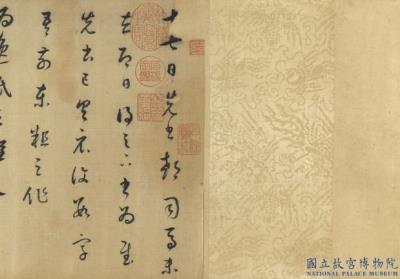 十七日先書郗司馬未
去即日得足下書為慰
先書以具示復數字
吾前東粗足作
為逸民之懷
國立故宮博物院
NATIONAL PALACE MUSEUM